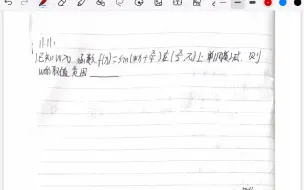 已知w>0, 函数f(x)=sin(wx+π/4)在(π/2,π)上单调递减, 则
w的取值范围